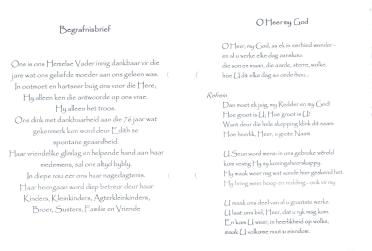 Begrafnisbrief
Ons is ons Hemelse Vader innig dankbaar vir die
jare wat ons geliefde moeder aan ons geleen was.
In ootmoet en hartseer buig ons voor die Here,
Hy alleen ken die antwoorde op ons vrae.
Hy alleen het troos.
Ons dink met dankbaarheid aan die 76 jaar wat
gekenmerk kon word deur Edith se
spontane geaardheid.
Haar vriendelike glimlag en helpende hand aan haar
medemens, sal ons altyd bybly.
In diepe rou eer ons haar nagedagtenis.
Haar heengaan word diep betreur deur haar
Kinders, Kleinkinders, Agterkleinkinders,
Broer, Susters, Familie en Vriende
O Heer my God
O Heer, my God, as ek in verbind wonder -
en al u werke elke dag aanskou:
die son en maan, die aarde, sterre, wolke,
hoe U dit elke dag so onderhou...
Refrein
Dan moet ek juig, my Redder en my God!
Hoe groot is U; Hoe groot is U!
Want deur die hele skepping klink dit saam:
Hoe heerlik, Heer, u grote Naam.
U Seun word mens - in ons gebroke wêreld
kom vestig Hy sy koningsheerskappy.
Hy maak weer reg wat sonde hier geskend het.
Hy bring weer hoop en redding - ook vir my.
U maak ons deel van al u grootste werke.
U laat ons bid, Heer, dat u ryk mag kom.
En kom U weer, in heerlikheid op wolke,
maak U volkome nuut u eiendom.